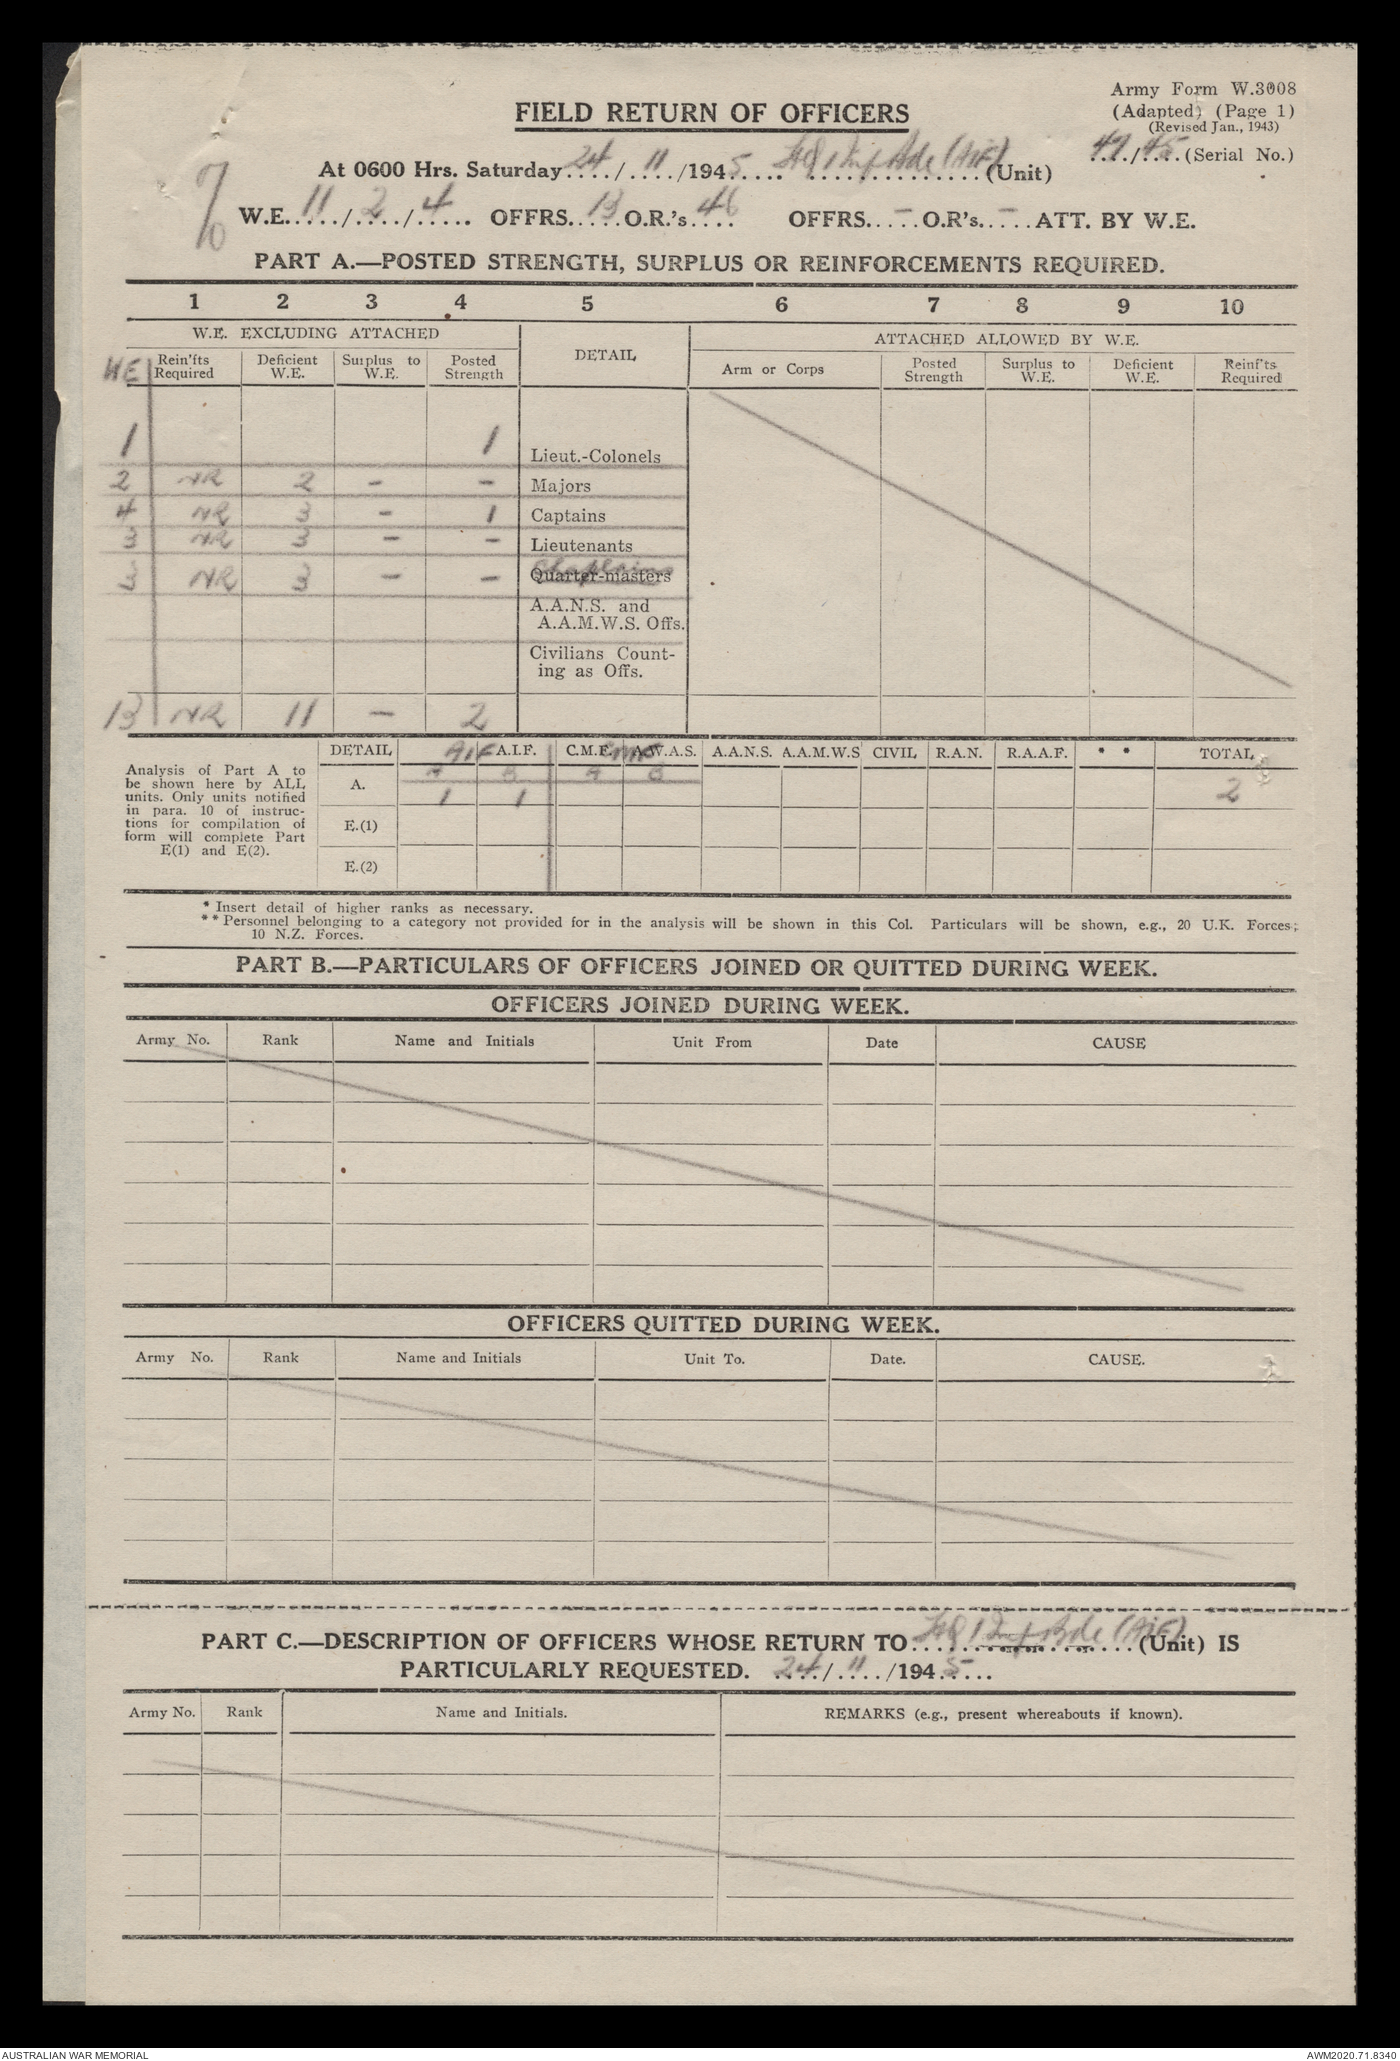 Army Form W.3008
FIELD RETURN OF OFFICERS
(Adapted) (Page 1)
(Revised Jan., 1943)
At 0600 Hrs. Saturday 24/11/1945 HQ 1 Inf Bde (AIF) (Unit)
47/45 (Serial No.)
W.E. 11/2/4 OFFRS. 13 O.R.'s 46 OFFRS. – O.R's. – ATT. BY W.E.
PART A.—POSTED STRENGTH, SURPLUS OR REINFORCEMENTS REQUIRED.
1 2 3 4 5 6 7 8 9 10
W.E. EXCLUDING ATTACHED DETAIL ATTACHED ALLOWED BY W.E.
WE Rein'fts Required Deficient W.E. Surplus to W.E. Posted Strength Arm or Corps Posted Strength Surplus to W.E. Deficient W.E. Reinf'ts Required
1 1 Lieut.-Colonels
2 NR 2 – – Majors
4 NR 3 – 1 Captains
3 NR 3 – – Lieutenants
3 NR 3 – – Quarter-masters Chaplains
A.A.N.S. and
A.A.M.W.S. Offs.
Civilians Count-
ing as Offs.
13 NR 11 – 2
DETAIL AIF A.I.F. C.M.F. CMF A.W.A.S. A.A.N.S. A.A.M.W.S CIVIL R.A.N. R.A.A.F. * * TOTAL
A B A B
A. 1 1 2
E.(1)
E.(2)
Analysis of Part A to
be shown here by ALL
units. Only units notified
in para. 10 of instruc-
tions for compilation of
form will complete Part
E(1) and E(2).
* Insert detail of higher ranks as necessary.
** Personnel belonging to a category not provided for in the analysis will be shown in this Col. Particulars will be shown, e.g., 20 U.K. Forces;
10 N.Z. Forces.
PART B.—PARTICULARS OF OFFICERS JOINED OR QUITTED DURING WEEK.
OFFICERS JOINED DURING WEEK.
Army No. Rank Name and Initials Unit From Date CAUSE
OFFICERS QUITTED DURING WEEK.
Army No. Rank Name and Initials Unit To. Date. CAUSE.
PART C.—DESCRIPTION OF OFFICERS WHOSE RETURN TO HQ 1 Inf Bde (AIF) (Unit) IS
PARTICULARLY REQUESTED. 24/11/1945
Army No. Rank Name and Initials. REMARKS (e.g., present whereabouts if known).
AUSTRALIAN WAR MEMORIAL
AWM2020.71.8340